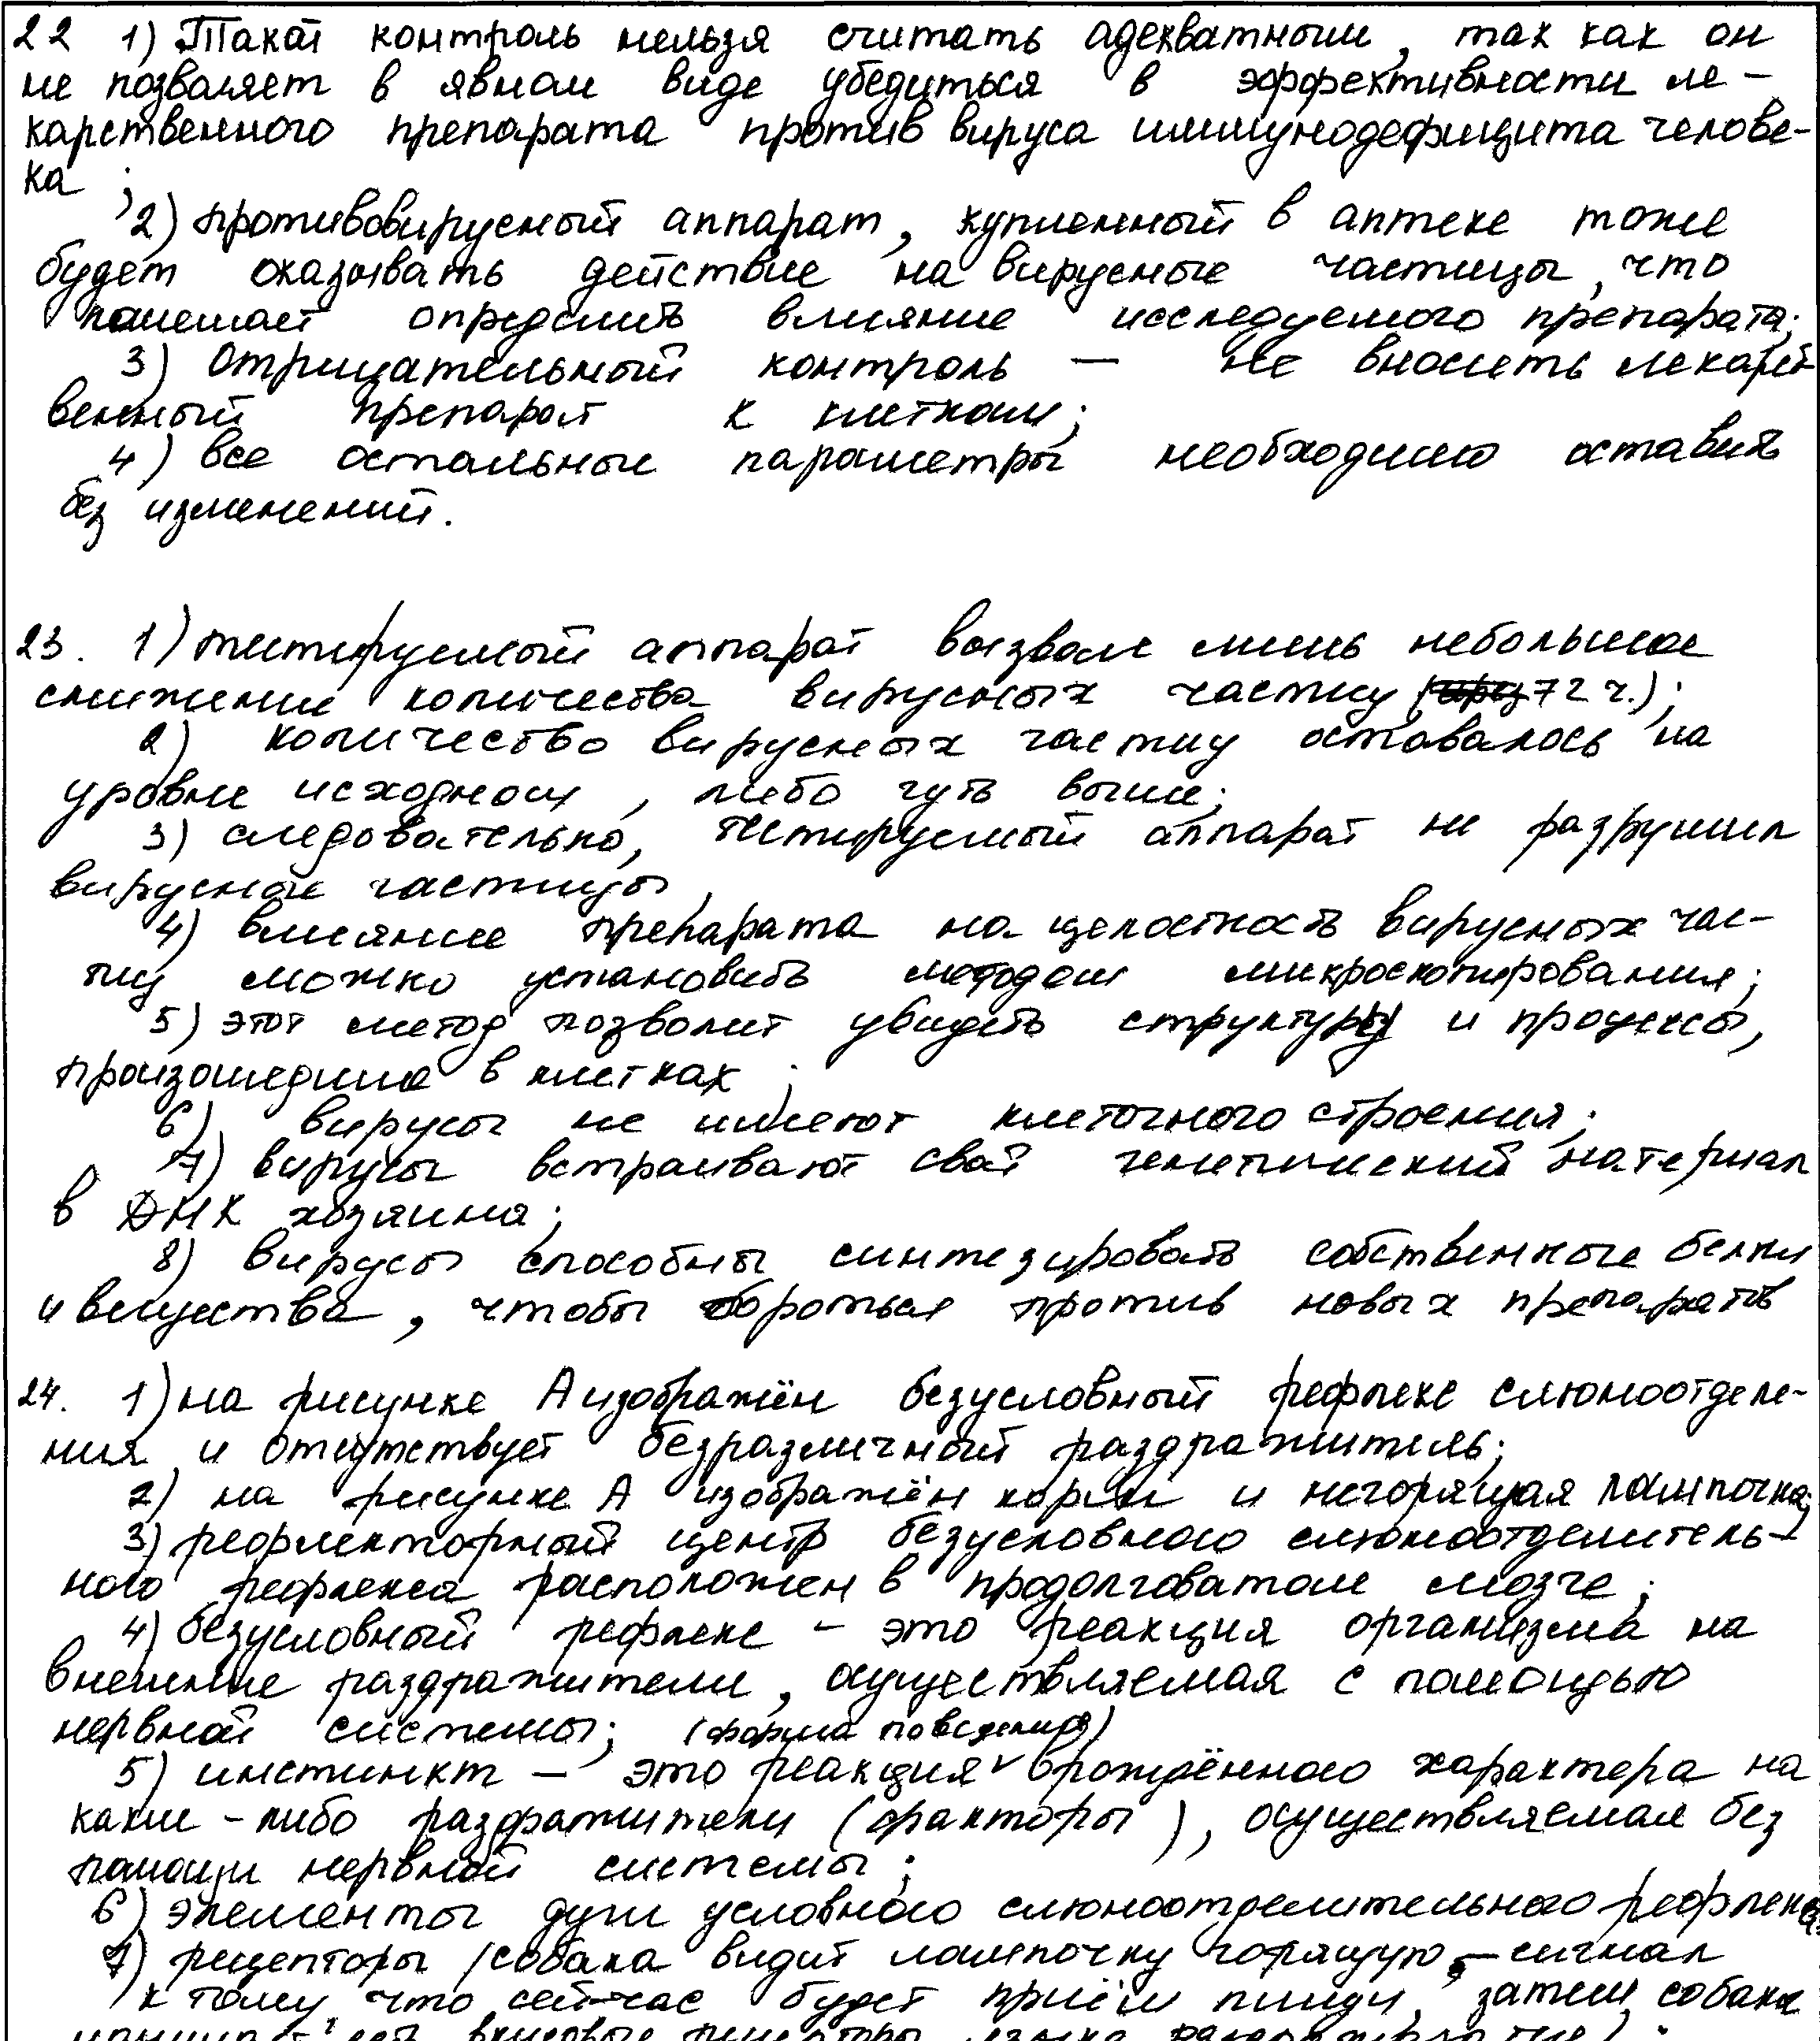 22 1) Такой контроль нельзя считать адекватным, так как он
не позволяет в явном виде убедиться в эффективности ле-
карственного препарата против вируса иммунодефицита челове-
ка;
2) противовирусный аппарат, купленный в аптеке тоже
будет оказывать действие на вирусные частицы, что
помешает определить влияние исследуемого препарата;
3) Отрицательный контроль — не вносить лекарст-
венный препарат к клеткам;
4) все остальные параметры необходимо оставить
без изменений.
23. 1) тестируемый аппарат вызвал лишь небольшое
снижение количества вирусных частиц (72 ч.);
2) количество вирусных частиц оставалось на
уровне исходном, либо чуть выше;
3) следовательно, тестируемый аппарат не разрушил
вирусные частицы,
4) влияние препарата на целостность вирусных час-
тиц можно установить методом микроскопирования;
5) этот метод позволит увидеть структуры и процессы,
произошедшие в клетках;
6) вирусы не имеют клеточного строения;
7) вирусы встраивают свой генетический материал
в ДНК хозяина;
8) вирусы способны синтезировать собственные белки
и вещества, чтобы бороться против новых препаратов
24. 1) на рисунке А изображён безусловный рефлекс слюноотделе-
ния и отсутствует безразличный раздражитель;
2) на рисунке А изображён корм и негорящая лампочка;
3) рефлекторный центр безусловного слюноотделитель-
ного рефлекса расположен в продолговатом мозге;
4) безусловный рефлекс – это реакция организма на
внешние раздражители, осуществляемая с помощью
нервной системы; (форма поведения)
5) инстинкт – это реакция врождённого характера на
какие-либо раздражители (факторы), осуществляемая без
помощи нервной системы;
6) элементы дуги условного слюноотделительного рефлекса:
7) рецепторы (собака видит лампочку горящую – сигнал
к тому, что сейчас будет приём пищи, затем собака